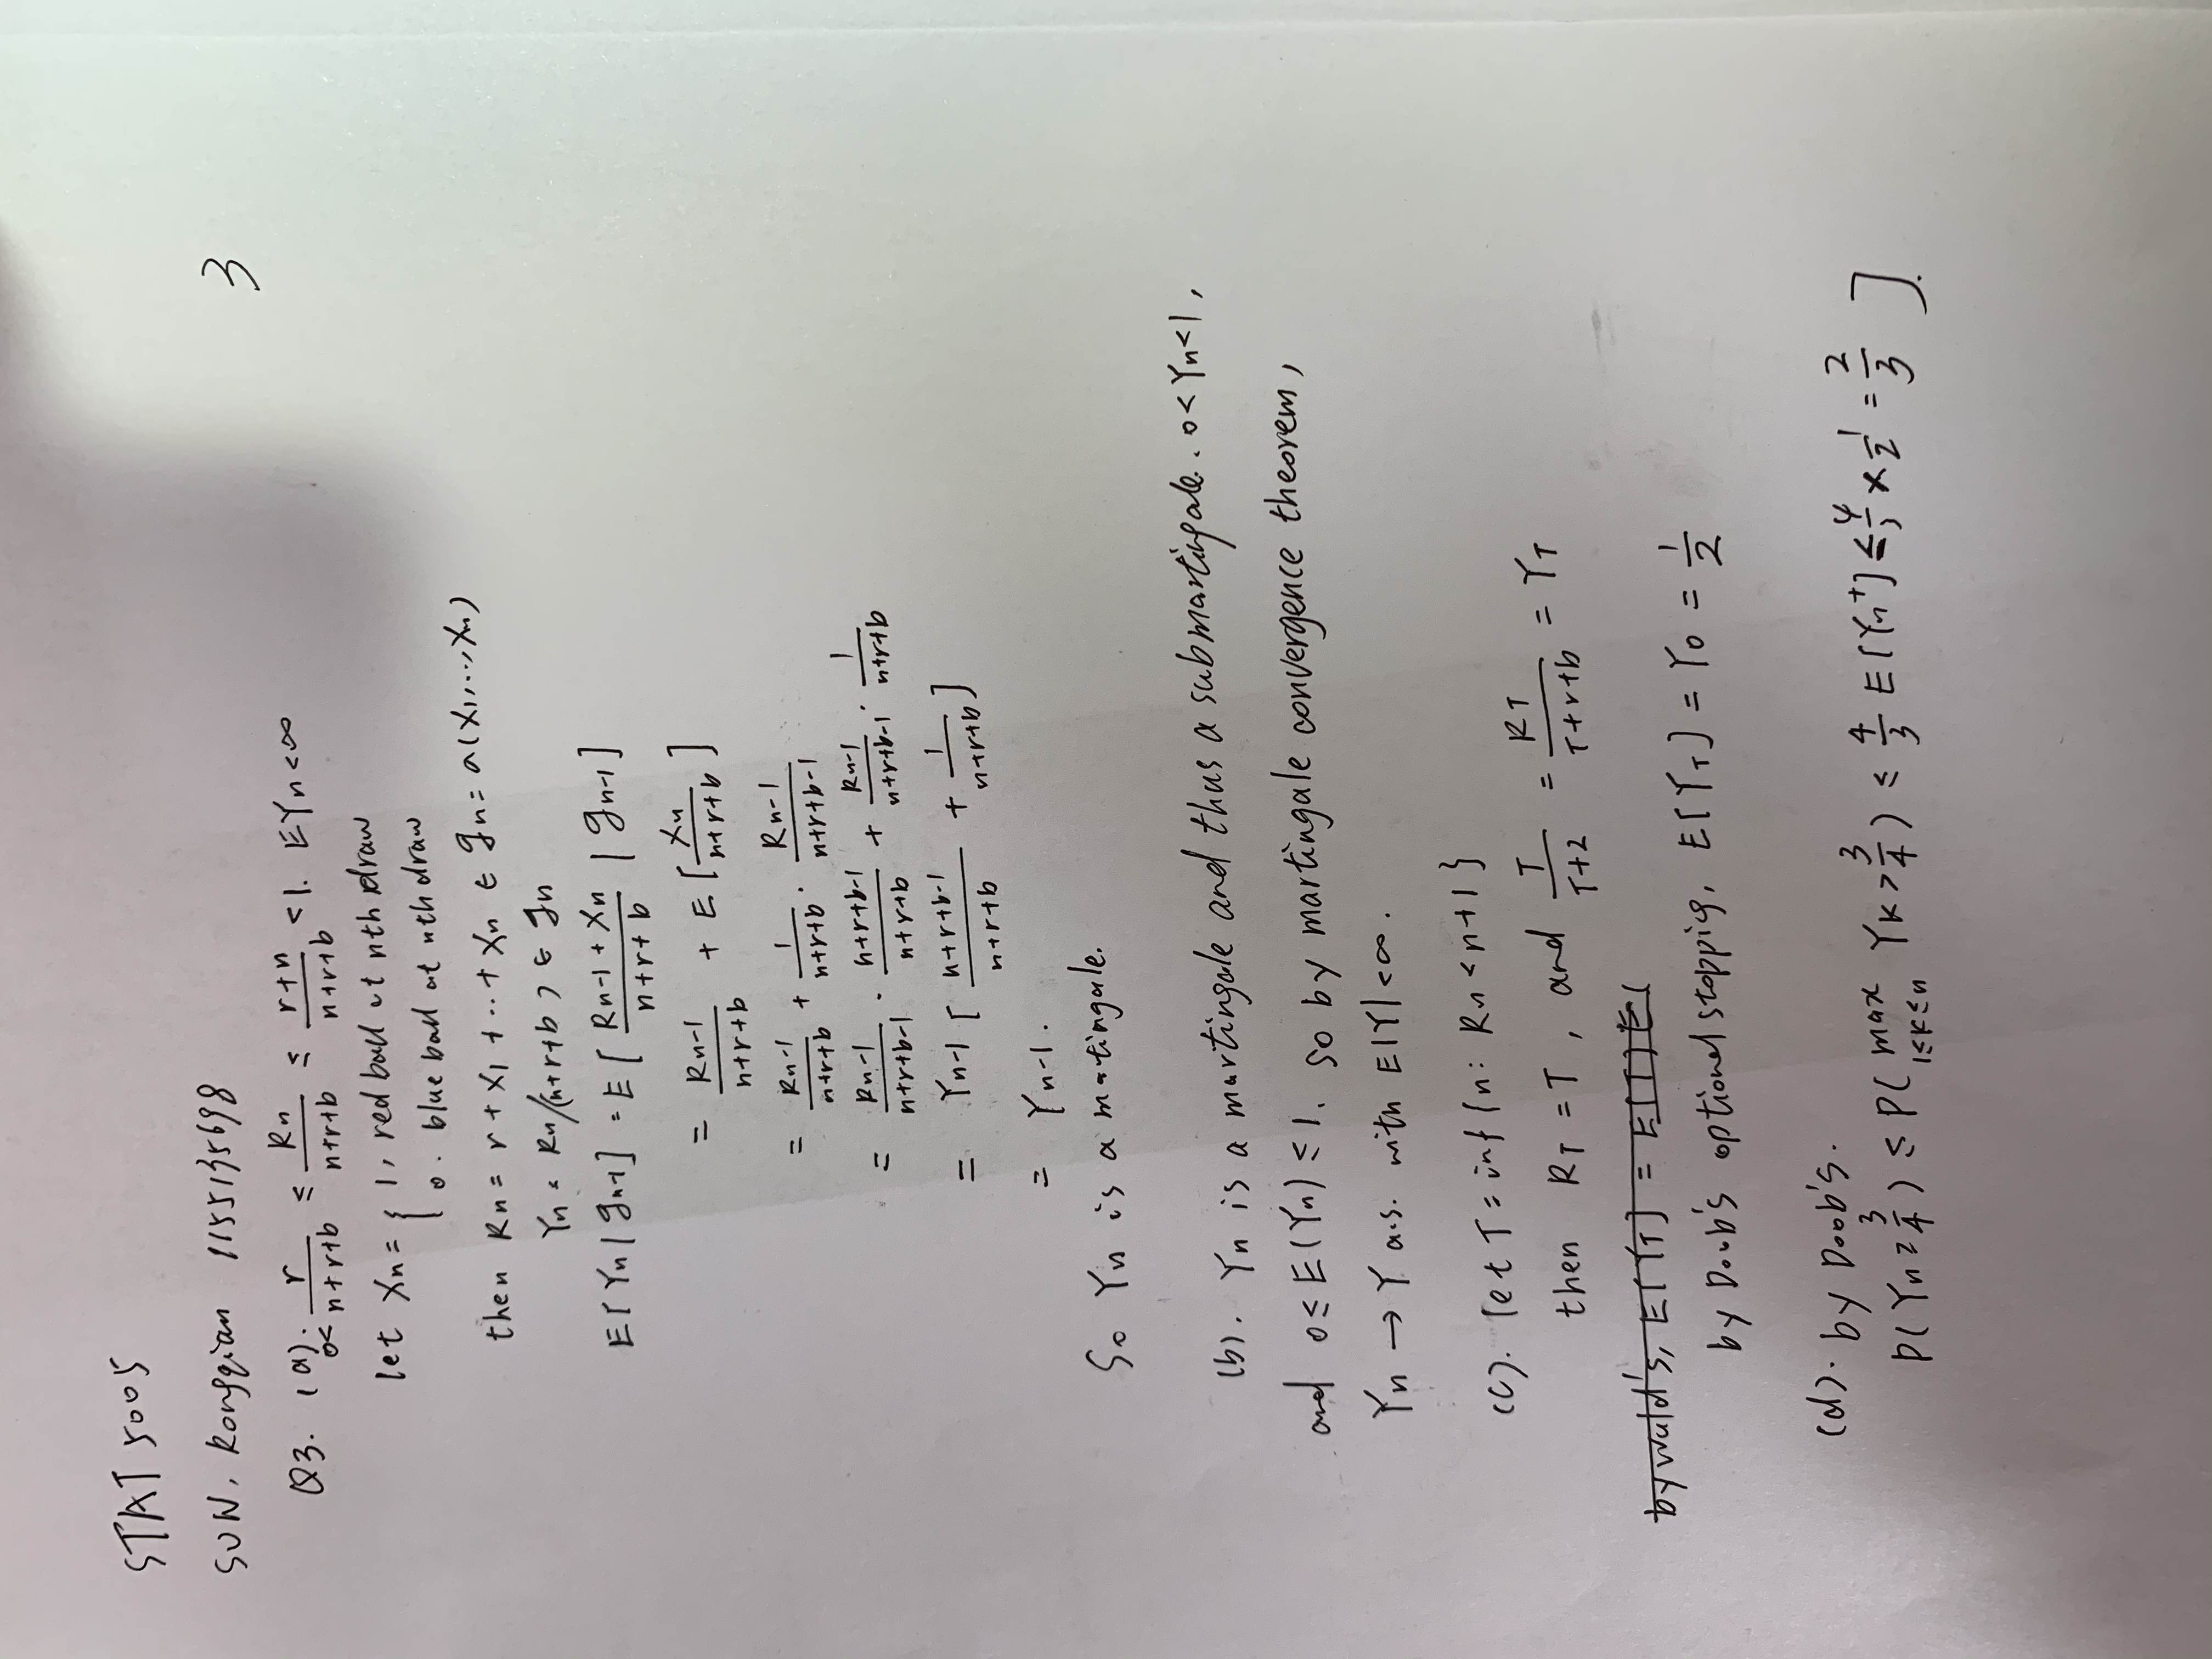 STAT 5005
SUN, Rongqian 1155135698
3
Q3. (a). 0< r/(n+r+b) ≤ Rn/(n+r+b) ≤ (r+n)/(n+r+b) <1. EYn<∞
let Xn = { 1, red ball at nth draw
0. blue ball at nth draw
then Rn = r + X1 + ..+ Xn ∈ gn = σ(X1,..., Xn)
Yn = Rn/(n+r+b) ∈ gn
E[Yn | gn-1] = E[ (Rn-1 + Xn)/(n+r+b) | gn-1]
= Rn-1/(n+r+b) + E[ Xn/(n+r+b) ]
= Rn-1/(n+r+b) + 1/(n+r+b) · Rn-1/(n+r+b-1)
= Rn-1/(n+r+b-1) · (n+r+b-1)/(n+r+b) + Rn-1/(n+r+b-1) · 1/(n+r+b)
= Yn-1 [ (n+r+b-1)/(n+r+b) + 1/(n+r+b) ]
= Yn-1.
So Yn is a martingale.
(b). Yn is a martingale and thus a submartingale. 0<Yn<1,
and 0≤E(Yn)≤1. so by martingale convergence theorem,
Yn → Y a.s. with E|Y|<∞.
(c). let T = inf{n: Rn<n+1}
then RT = T, and T/(T+2) = RT/(T+r+b) = YT
by wald's, E[YT] = E[T]E(
by Doob's optional stopping, E[YT] = Y0 = 1/2
(d). by Doob's.
P(Yn≥3/4) ≤ P(max 1≤k≤n Yk>3/4) ≤ 4/3 E[Yn+] ≤ 4/3 × 1/2 = 2/3 ].